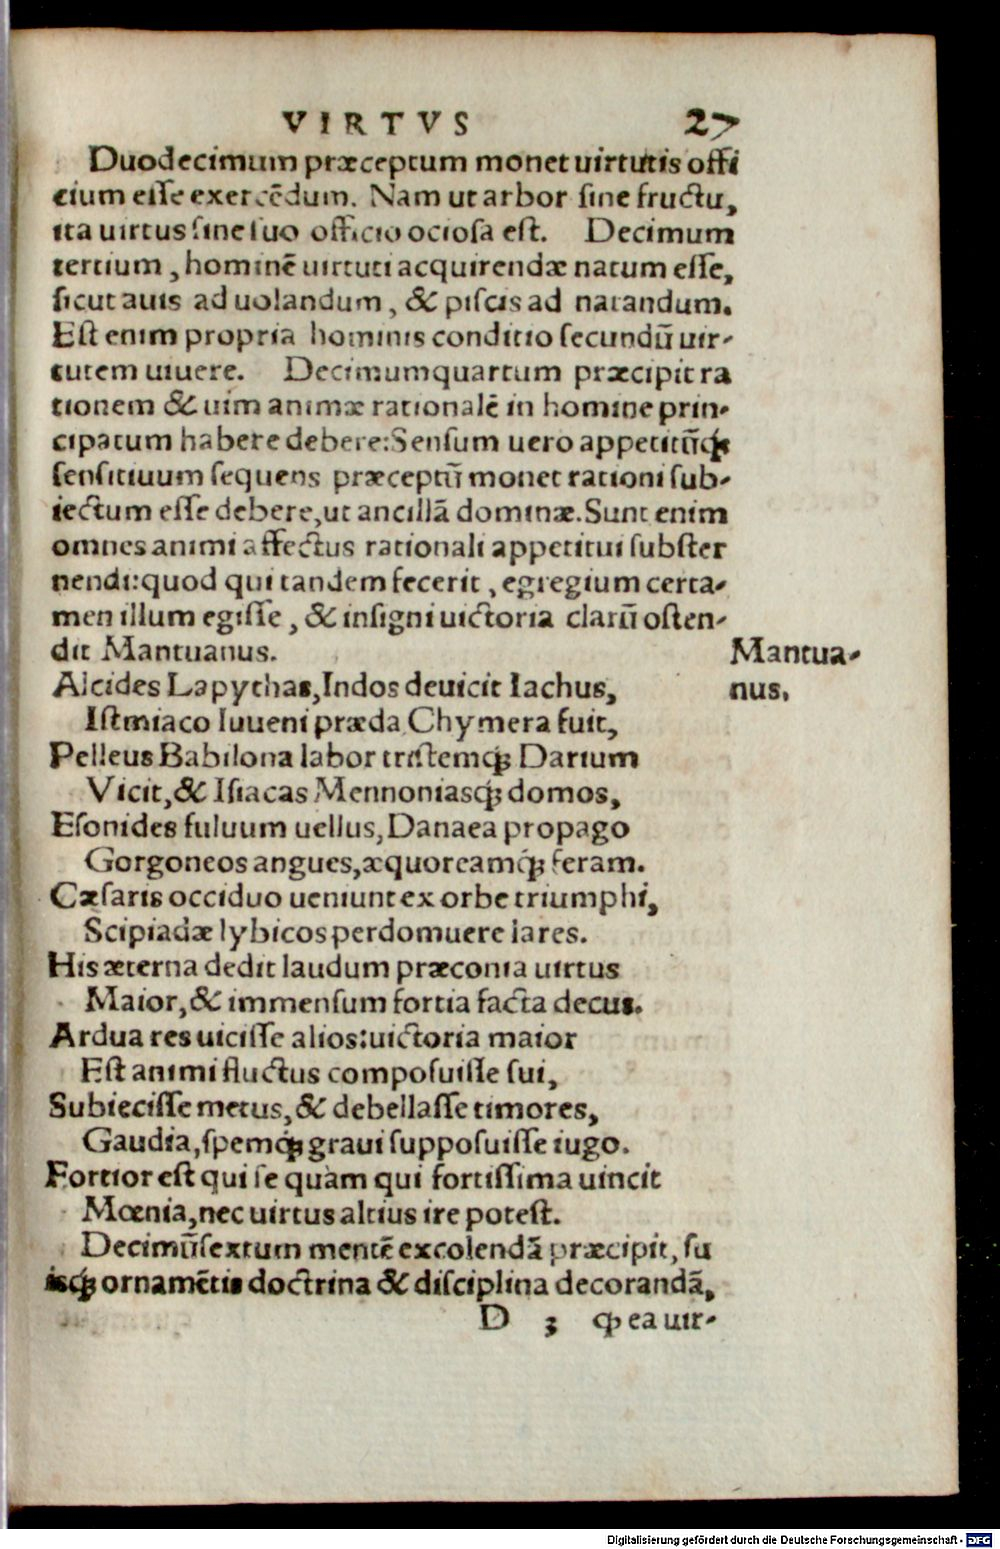 VIRTVS 27
Duodecimum præceptum monet uirtutis offi
cium eſſe exercēdum. Nam ut arbor ſine fructu,
ita uirtus ſine ſuo officio ocioſa eſt. Decimum
tertium, hominē uirtuti acquirendæ natum eſſe,
ſicut auis ad uolandum, & piſcis ad natandum.
Eſt enim propria hominis conditio ſecundū uir-
tutem uiuere. Decimumquartum præcipit ra
tionem & uim animæ rationalē in homine prin-
cipatum habere debere:Senſum uero appetitūq́;
ſenſitiuum ſequens præceptū monet rationi ſub-
iectum eſſe debere,ut ancillā dominæ.Sunt enim
omnes animi affectus rationali appetitui ſubſter
nendi:quod qui tandem fecerit, egregium certa-
men illum egiſſe, & inſigni uictoria clarū oſten-
dit Mantuanus.
Mantua-
nus.
Alcides Lapythas,Indos deuicit Iachus,
Iſtmiaco Iuueni præda Chymera fuit,
Pelleus Babilona labor triſtemq́; Darium
Vicit,& Iſiacas Mennoniasq́; domos,
Eſonides fuluum uellus,Danaea propago
Gorgoneos angues,æquoreamq́; feram.
Cæſaris occiduo ueniunt ex orbe triumphi,
Scipiadæ lybicos perdomuere lares.
His æterna dedit laudum præconia uirtus
Maior,& immenſum fortia facta decus.
Ardua res uiciſſe alios:uictoria maior
Eſt animi fluctus compoſuiſſe ſui,
Subieciſſe metus,& debellaſſe timores,
Gaudia,ſpemq́; graui ſuppoſuiſſe iugo.
Fortior eſt qui ſe quàm qui fortiſſima uincit
Mœnia,nec uirtus altius ire poteſt.
Decimūſextum mentē excolendā præcipit, ſu
isq́; ornamētis doctrina & diſciplina decorandā,
D 3 ꝙ ea uir-
Digitalisierung gefördert durch die Deutsche Forschungsgemeinschaft - DFG